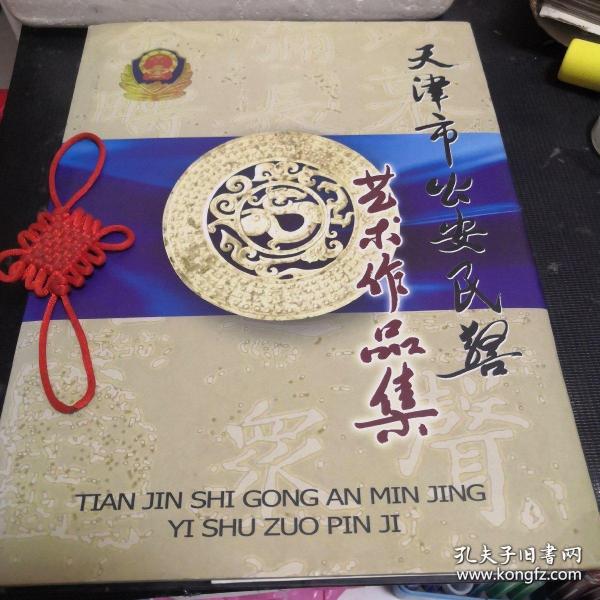 天津市公安民警
艺术作品集
眾
聲
TIAN JIN SHI GONG AN MIN JING
YI SHU ZUO PIN JI
孔夫子旧书网
www.kongfz.com